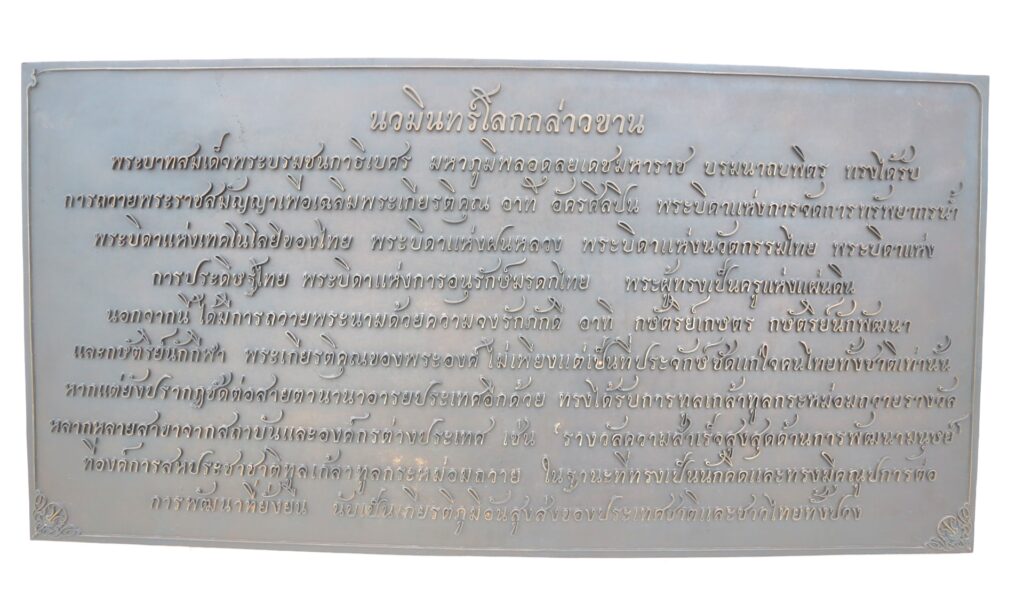 นวมินทร์โลกกล่าวขาน
พระบาทสมเด็จพระบรมชนกาธิเบศร มหาภูมิพลอดุลยเดชมหาราช บรมนาถบพิตร ทรงได้รับ
การถวายพระราชสมัญญาเพื่อเฉลิมพระเกียรติคุณ อาทิ อัครศิลปิน พระบิดาแห่งการจัดการทรัพยากรน้ำ
พระบิดาแห่งเทคโนโลยีของไทย พระบิดาแห่งฝนหลวง พระบิดาแห่งนวัตกรรมไทย พระบิดาแห่ง
การประดิษฐ์ไทย พระบิดาแห่งการอนุรักษ์มรดกไทย พระผู้ทรงเป็นครูแห่งแผ่นดิน
นอกจากนี้ ได้มีการถวายพระนามด้วยความจงรักภักดี อาทิ กษัตริย์เกษตร กษัตริย์นักพัฒนา
และกษัตริย์นักกีฬา พระเกียรติคุณของพระองค์ ไม่เพียงแต่เป็นที่ประจักษ์ชัดแก่ใจคนไทยทั้งชาติเท่านั้น
หากแต่ยังปรากฏชัดต่อสายตานานาอารยประเทศอีกด้วย ทรงได้รับการทูลเกล้าทูลกระหม่อมถวายรางวัล
หลากหลายสาขาจากสถาบันและองค์กรต่างประเทศ เช่น "รางวัลความสำเร็จสูงสุดด้านการพัฒนามนุษย์"
ที่องค์การสหประชาชาติทูลเกล้าทูลกระหม่อมถวาย ในฐานะที่ทรงเป็นนักคิดและทรงมีคุณูปการต่อ
การพัฒนาที่ยั่งยืน นับเป็นเกียรติภูมิอันสูงส่งของประเทศชาติและชาวไทยทั้งปวง